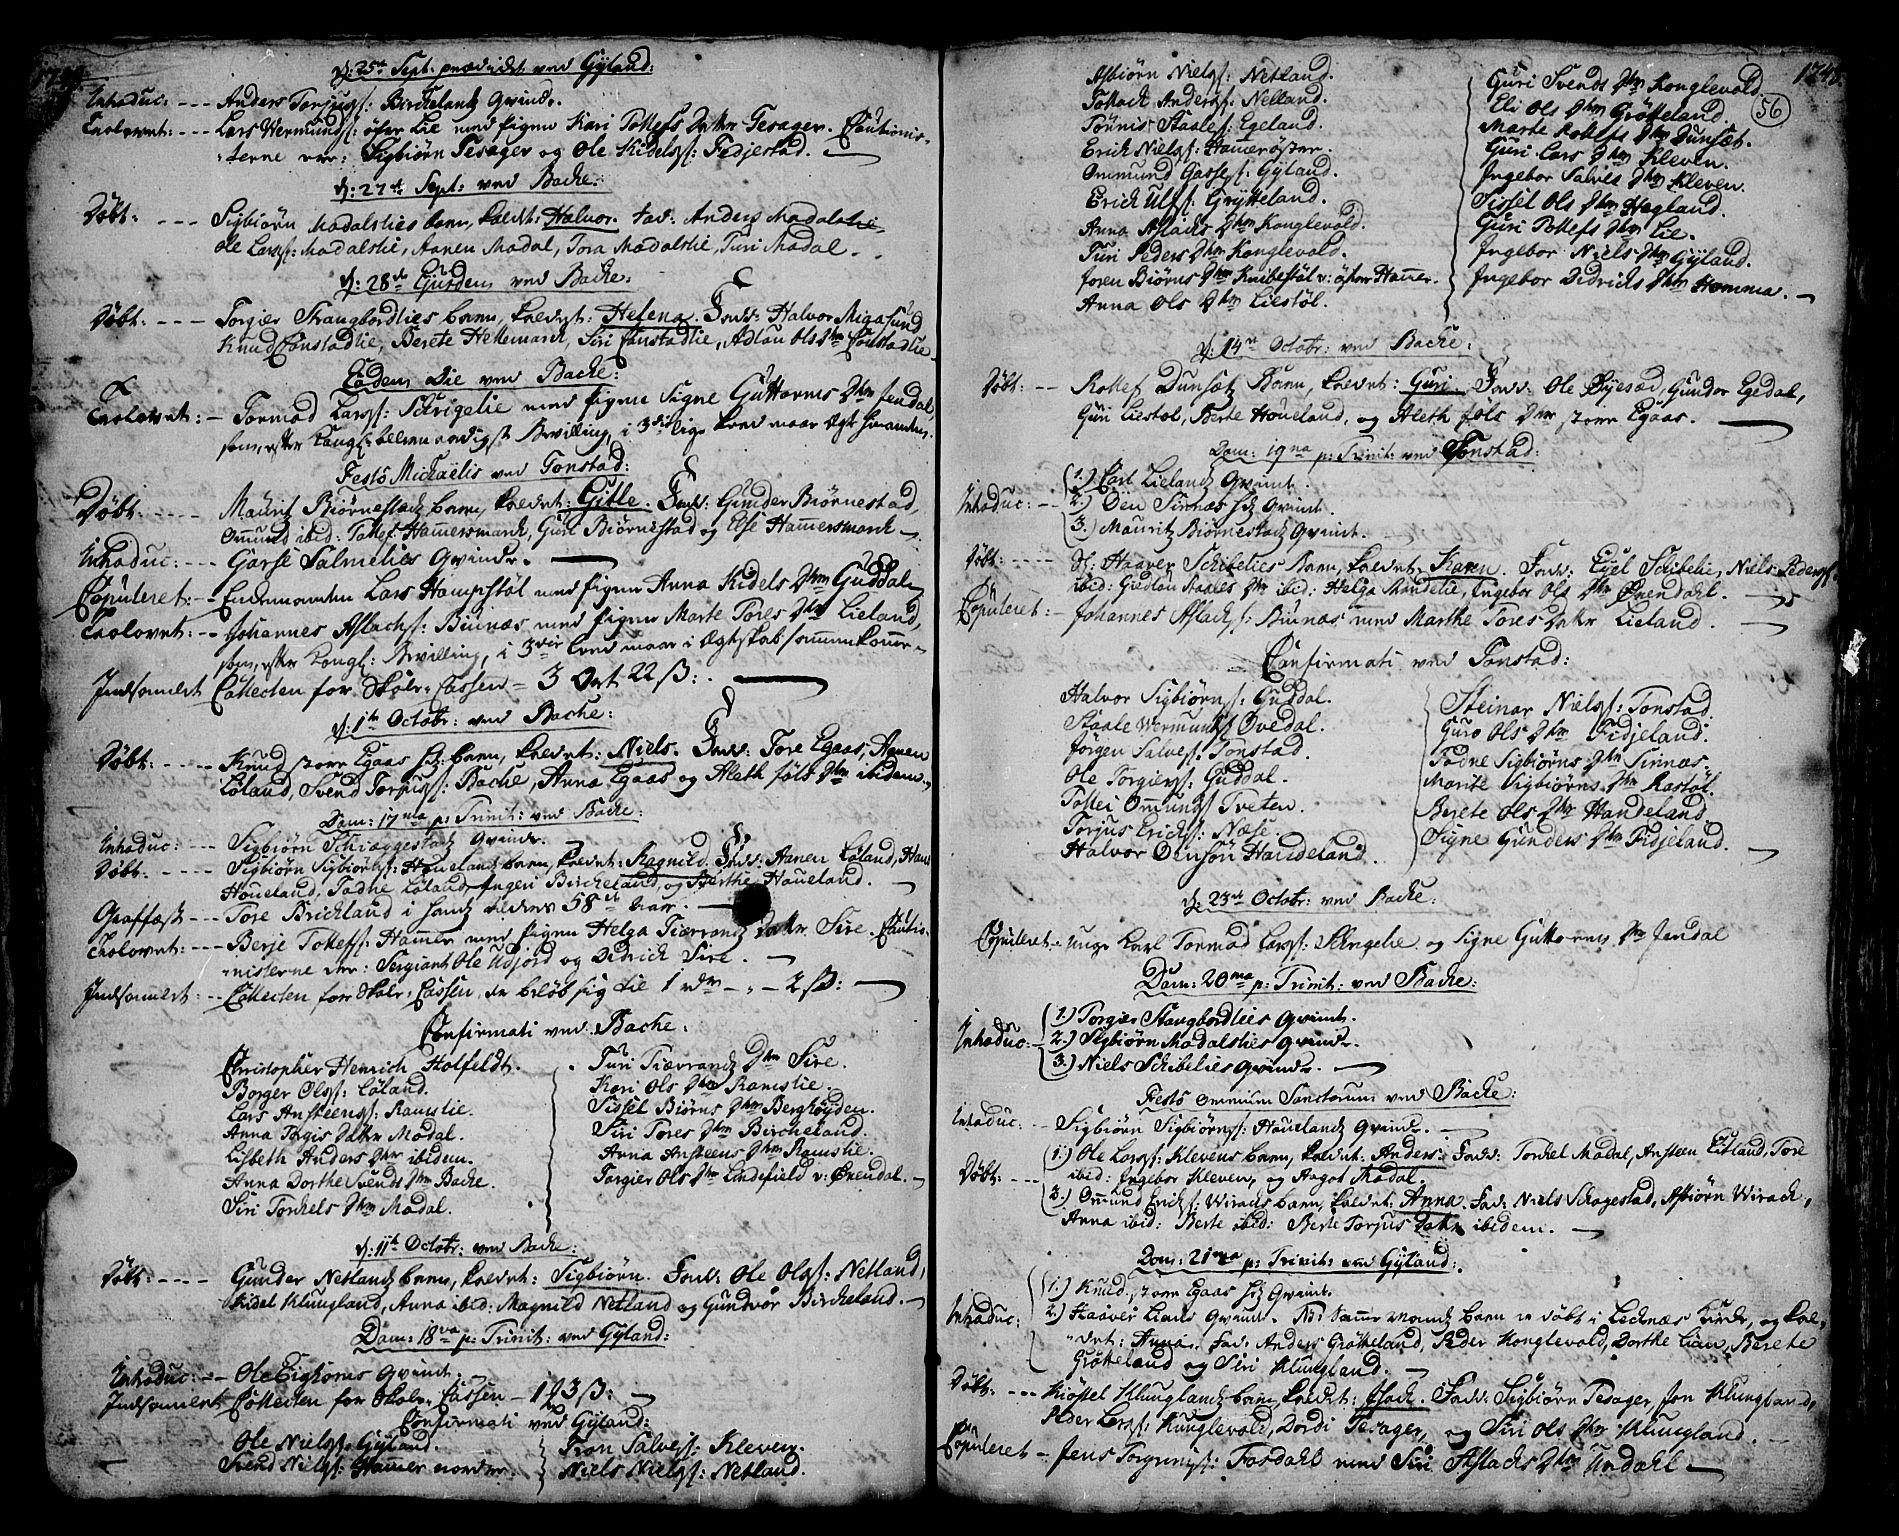 d: 25de Sept: prædiket ved Gyland:
Introduc: --- Anders Torjus: Birckelands Qvinde.
Trolovet: --- Lars Wermunds: øfre Lie med Pigen Kari Tollefs Datter Tesager. Cautionis-
terne var: Sigbiørn Tesager og Ole Kidels: Fedjestad.
d: 27de Sept: ved Backe:
Døbt: --- Sigbiørn Madalslies barn, kaldet: Halvor. Fad: Anders Madalslie,
Ole Lars: Madalslie, Aanen Madal, Tora Madalslie, Turi Madal.
d: 28de ved Backe:
Døbt: --- Torgies Strangbordlies barn, kaldet: Helena. Fadd: Halvor Migasund
Knud Constadlie, Berete Hellemarck, Siri Constadlie, Adlau Ols Dtr Constadlie
Eodem Die ved Backe:
Trolovet: - Tormod Lars: Schrigelie med Pigen Signe Guttorms Dtr Jendal,
som, efter Kongl: Bevilling, i 3die
Festo Michaëlis ved Tonstad:
Døbt: --- Maurits Biørnestads barn, kaldet: Gitle. Fadd: Gunder Biørnestad,
Omund ibid: Tollef Hammersmarck, Guri Biørnestad og Else Hammersmarck
Introduc: --- Garse Salmelies Qvinde.
Copuleret: - Enkemanden Lars Hompstøl med Pigen Anna Kidels Dtr Guddal
Trolovet: -- Johannes Aslachs: Biunæs med Pigen Marte Tores Dtr Lieland,
som, efter Kongl: Bevilling, i 3die Leed maae i Ægteskab sammenkomme
Indsamlet Collecten for Skole-Cassen = 3 Ort 22 ß:
d: 1te Octobr: ved Backe:
Døbt: --- Knud store Egaas barn, kaldet: Niels. Fadd: Tore Egaas, Aanen
Løland, Svend Torjus: Backe, Anna Egaas og Aleth Føls Dtr ibidem
Dom: 17ma p: Trinit: ved Backe:
Introduc: --- Sigbiørn Schreggestads Qvinde.
Døbt: --- Sigbiørn Sigbiørns: Houelands barn, kaldet: Ragnild. Fadd: Aanen Løland, Hans
Houeland, Tadne Løland, Ingeri Birckeland, og Berthe Houeland.
Graffæst --- Tore Brickland i hands alders 58de Aar.
Trolovet: --- Berje Tollefs: Hammer med Pigen Helga Tiærrands Datter Sire. Cautio-
nisterne var: Sergiant Ole Udjord og Didrick Sire.
Indsamlet: -- Collecten for Skole-Cassen, der beløb sig til 1 rdr - " - 2 ß:
Confirmati ved Backe:
Christopher Henrich Holfeldt.
Borger Ols: Løland.
Lars Ansteens: Ramslie.
Anna Torgis Datter Madal.
Lisbeth Anders Dtr ibidem.
Anna Dorthe Svends Dtr Backe.
Siri Torkels Dtr Madal.
Turi Tiærrands Dtr Sire.
Kari Ols Dtr Ramslie.
Sissel Biørns Dtr Berghøyden.
Siri Tores Dtr Bircheland.
Anna Ansteens Dtr Ramslie.
Torgier Ols Dtr Lindefield v: Ørendal.
d: 11te Octobr: ved Backe:
Døbt: --- Gunder Netlands barn, kaldet: Sigbiørn. Fadd: Ole Ols: Netland,
Kidel Klungland, Anna ibid: Magnild Netland og Gundvør Bircheland.
Dom: 18va p: Trinit: ved Gyland:
Introduc: -- Ole Eighoms Qvinde.
Indsamlet Collecten for Skole-Cassen - 1 3 ß:
Confirmati ved Gyland:
Ole Niels: Gyland.
Svend Niels: Hammer nordre.
Tron Salves: Kleven.
Niels Niels: Netland.
1748.
56
Asbiørn Niels: Netland.
Tollack Anders: Netland.
Tønnis Staales: Egeland.
Erick Niels: Hammer øster.
Ommund Gasses: Gyland.
Erick Ulfs: Grytteland.
Anna Aslachs Dtr Konglevold.
Turi Peders Dtr Konglevold.
Joren Biørns Dtr Knibestøl v: øfre Hammer.
Anna Ols Dtr Liestøl.
Guri Svends Dtr Konglevold.
Eli Ols Dtr Grötteland.
Marte Rollefs Dtr Dunsæt.
Guri Lars Dtr Kleven.
Ingebor Salves Dtr Kleven.
Sissel Ols Dtr Hegland.
Guri Tollefs Dtr Lie.
Ingebor Niels Dtr Gyland.
Ingebor Didricks Dtr Homma.
d: 14de Octobr: ved Backe:
Døbt: -- Rollef Dunsæts Barn, kaldet: Guri. Fadd: Ole Øyesød, Gunder Egedal,
Guri Liestøl, Berte Houeland, og Aleth Føls Dtr store Egaas.
Dom: 19na p: Trinit: ved Tonstad:
Introduc: -- 1.) Carl Lielands Qvinde.
2.) Øen Sirnæs Hs Qvinde.
3.) Maurits Biørnestads Qvinde.
Døbt: --- Sl: Haaver Schibelies Barn, kaldet: Karen. Fadd: Eyel Schibelie, Niels Peders
ibid: Gudlau Staales Dtr ibid: Helga Mandelie, Ingebor Ols Dtr Ørendahl.
Copuleret: - Johannes Aslachs: Biunæs med Marthe Tores Datter Lieland.
Confirmati ved Tonstad:
Halvor Sigbiørns: Guddal.
Staale Wermunds Ovedal.
Jørgen Salves: Tonstad.
Ole Torgiers: Guddal.
Tollei Ommunds Tveten.
Torjus Ericks: Næse.
Halvor Ølnsøn Haudeland.
Steinar Niels: Tonstad
Guro Ols Dtr Fidjeland.
Tadne Sigbiørns Dtr Sinnæs.
Marite Sigbiørns Dtr Rastøl.
Berete Ols Dtr Handeland.
Signe Gunders Dtr Fidjeland.
d: 23de Octobr: ved Backe:
Copuleret - unge Karl Tormod Lars: Schrigelie og Signe Guttorms Dtr Jendal
Dom: 20ma p: Trinit: ved Backe:
Introduc: - 1.) Torgier Stangbordlies Qvinde.
2.) Sigbiørn Madalslies Qvinde.
3.) Niels Schibelies Qvinde.
Festo omnium Sanctorum ved Backe:
Introduc: -- Sigbiørn Sigbiørns: Houelands Qvinde.
Døbt: --- 1.) Ole Lars: Klevens barn, kaldet: Anders. Fadd: Torkel Madal, Ansteen Eitland, Tore
ibid: Ingebor Kleven, og Aagot Madal.
2.) Ommund Ericks: Wiracks barn, kaldet: Anna. Fad: Niels Schagestad, Asbiørn Wirack,
Anna ibid: Berte ibid: Berte Torjus Datter ibidem.
Dom: 21ma p: Trinit: ved Gyland:
Introduc: 1.) Knud store Egaas Hs Qvinde.
2.) Haaver Lians Qvinde. NB: Samme Mands barn er døbt i Lednæs Kirke, og kal-
det: Anna. Fad: Anders Grötteland, Peder Konglevold, Dorthe Lian, Berete
Grötteland og Siri Klungland.
Døbt: --- Kiøstel Klunglands barn, kaldet: Isack. Fadd: Sigbiørn Tesager, Jon Klungland,
Peder Lars: Kunglevold, Dordi Tesager, og Siri Ols Dtr Klungland.
Copuleret - Jens Torgrims: Fardahl med Siri Aslachs Dtr Undahl